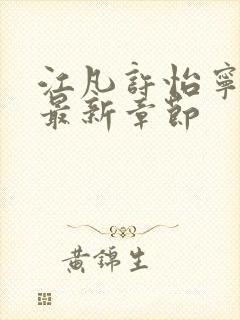 江凡許怡寧
最新章節
黃錦生